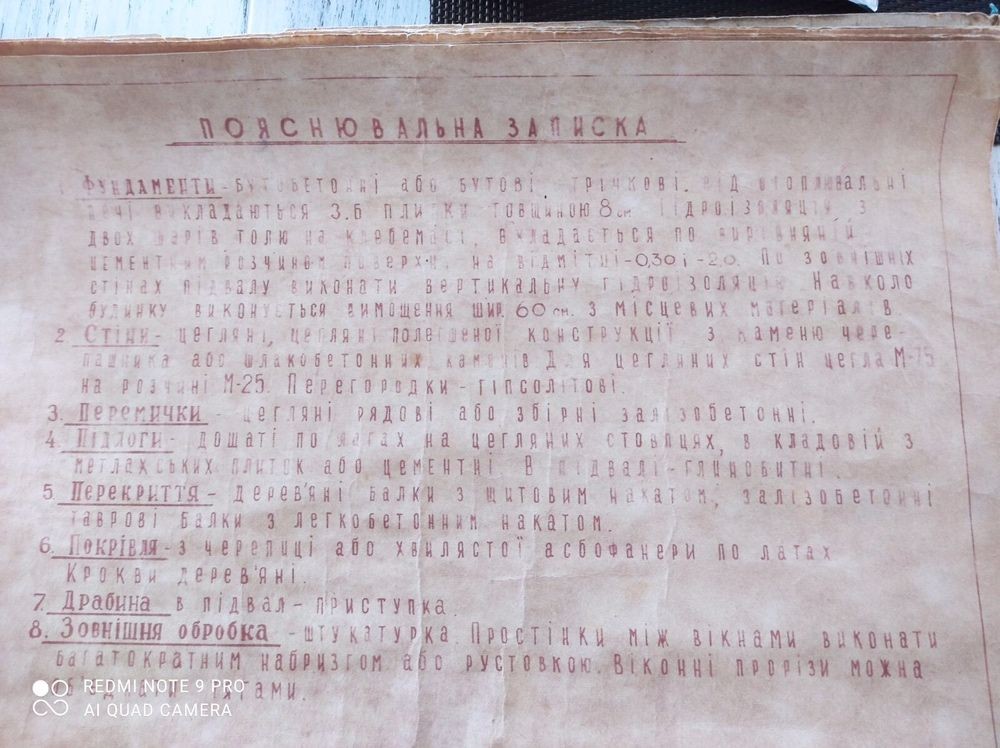 ПОЯСНЮВАЛЬНА ЗАПИСКА
1. ФУНДАМЕНТИ - БУТОБЕТОННІ АБО БУТОВІ, СТРІЧКОВІ. ВІД
ПЕЧІ ВИКЛАДАЮТЬСЯ З.Б ПЛИТКИ ТОВЩИНОЮ 8 см ГІДРОІЗОЛЯЦІЯ З
ДВОХ ШАРІВ ТОЛЮ НА КЛЕБЕМАСІ, ВКЛАДАЄТЬСЯ ПО ВИРІВНЯНІЙ
ЦЕМЕНТНИМ РОЗЧИНОМ ПОВЕРХНІ, НА ВІДМІТНІ -0,30 І -2.0. ПО ЗОВНІШНІХ
СТІНАХ ПІДВАЛУ ВИКОНАТИ ВЕРТИКАЛЬНУ ГІДРОІЗОЛЯЦІЮ. НАВКОЛО
БУДИНКУ ВИКОНУЄТЬСЯ ВИМОЩЕННЯ ШИР. 60 см. З МІСЦЕВИХ МАТЕРІАЛІВ.
2. СТІНИ - ЦЕГЛЯНІ, ЦЕГЛЯНІ ПОЛЕГШЕНОЇ КОНСТРУКЦІЇ З КАМЕНЮ ЧЕРЕ-
ПАШНИКА АБО ШЛАКОБЕТОННИХ КАМЕНІВ ДЛЯ ЦЕГЛЯНИХ СТІН ЦЕГЛА М-75
НА РОЗЧИНІ М-25. ПЕРЕГОРОДКИ - ГІПСОЛІТОВІ.
3. ПЕРЕМИЧКИ - ЦЕГЛЯНІ РЯДОВІ АБО ЗБІРНІ ЗАЛІЗОБЕТОННІ.
4. ПІДЛОГИ - ДОШАТІ ПО ЛАГАХ НА ЦЕГЛЯНИХ СТОВПЦЯХ, В КЛАДОВІЙ З
МЕТЛАХСЬКИХ ПЛИТОК АБО ЦЕМЕНТНІ. В ПІДВАЛІ - ГЛИНОБИТНІ.
5. ПЕРЕКРИТТЯ - ДЕРЕВ'ЯНІ БАЛКИ З ЩИТОВИМ НАКАТОМ, ЗАЛІЗОБЕТОННІ
ТАВРОВІ БАЛКИ З ЛЕГКОБЕТОННИМ НАКАТОМ.
6. ПОКРІВЛЯ - З ЧЕРЕПИЦІ АБО ХВИЛЯСТОЇ АСБОФАНЕРИ ПО ЛАТАХ
КРОКВИ ДЕРЕВ'ЯНІ.
7. ДРАБИНА В ПІДВАЛ - ПРИСТУПКА.
8. ЗОВНІШНЯ ОБРОБКА - ШТУКАТУРКА. ПРОСТІНКИ МІЖ ВІКНАМИ ВИКОНАТИ
БАГАТОКРАТНИМ НАБРИЗГОМ АБО РУСТОВКОЮ. ВІКОННІ ПРОРІЗИ МОЖНА
ТЯГАМИ.
REDMI NOTE 9 PRO
AI QUAD CAMERA